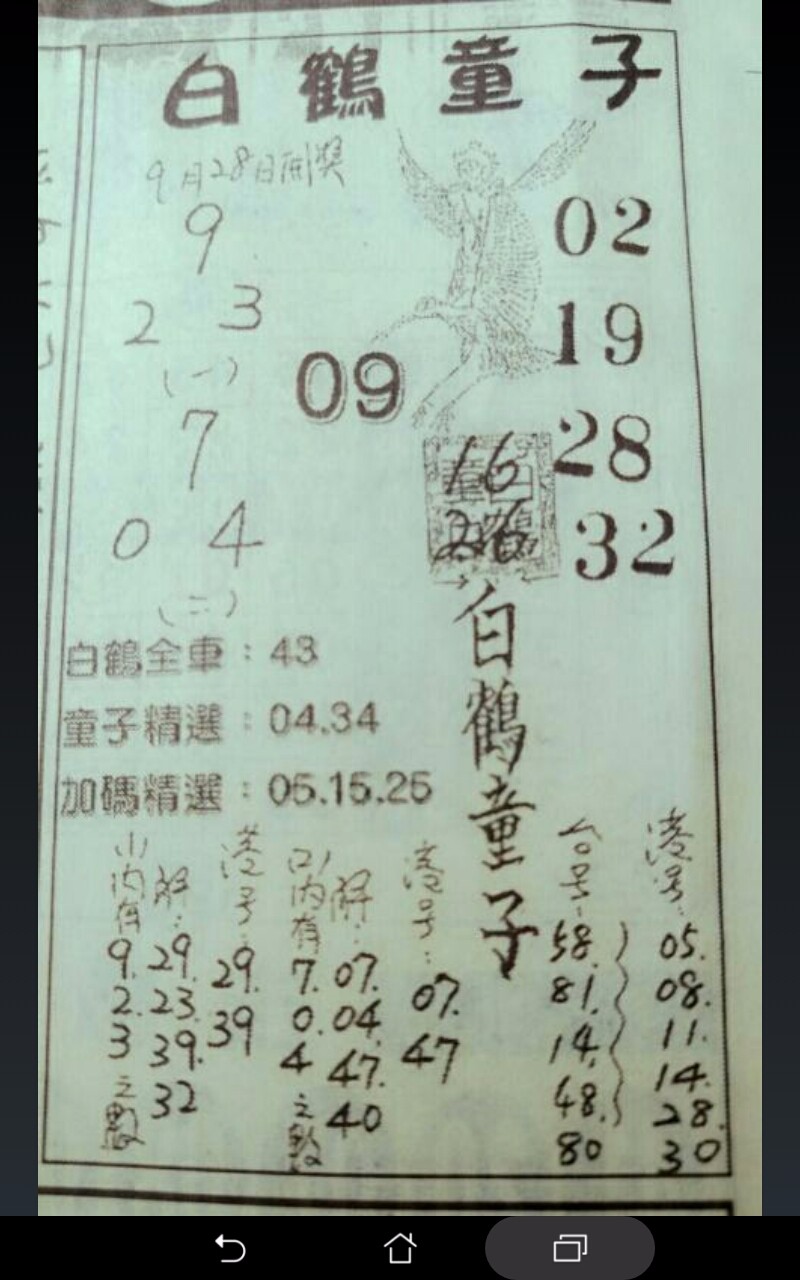 白鶴童子
9月28日開獎
9
2 3
(一)
7
0 4
(二)
09
02
19
28
32
16
26
白鶴童子
白鶴全車：43
童子精選：04.34
加碼精選：05.15.25
(一)內有
9.
2.
3
之數
解：
29.
23.
39.
32
港号：
29.
39
(二)內有
7.
0.
4
之數
解：
07.
04.
47.
40
港号：
07.
47
台号：
58.
81.
14.
48.
80
港号：
05.
08.
11.
14.
28.
30